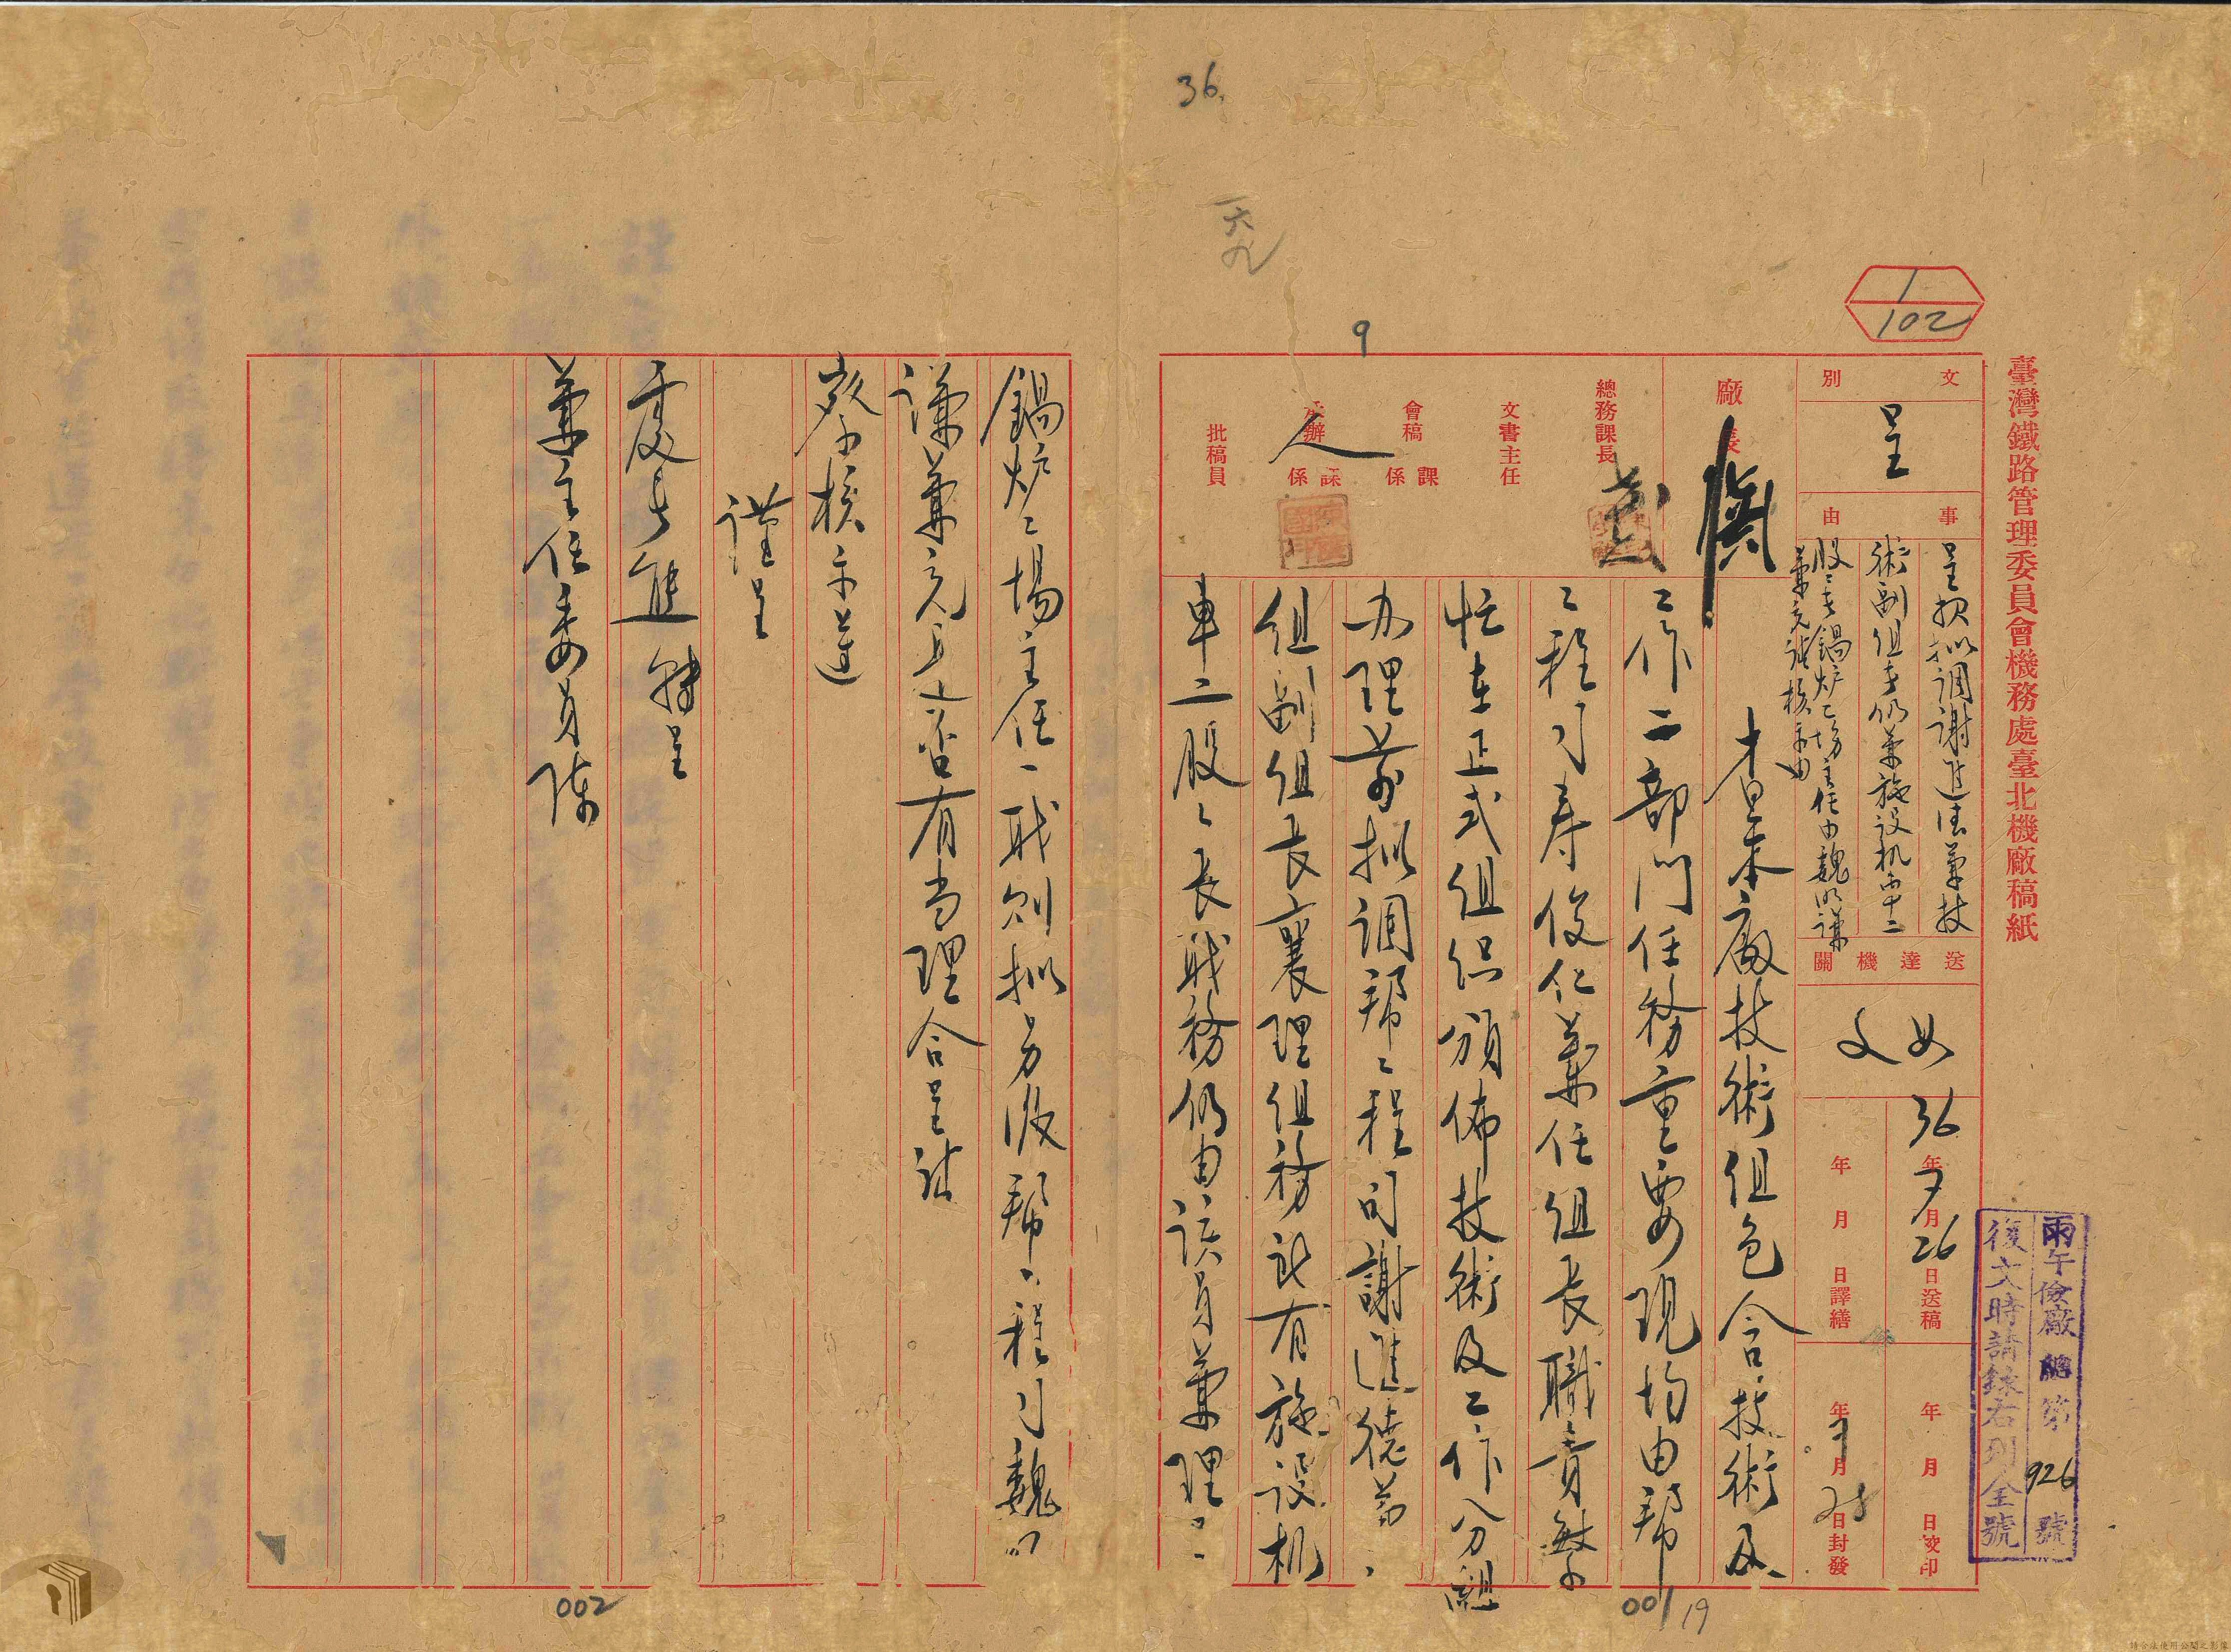 36.
一六九
1
102
9
臺灣鐵路管理委員會機務處臺北機廠稿紙
文別
呈
事由
呈報拟調謝進德兼技
術副組長仍兼施設机車二
股股長鍋炉工場主任由魏
兼充請核示由
送達機關
36年7月26日送稿
年月日譯繕
年月日校印
年7月28日封發
雨午儉廠總第926號
復文時請錄右列全號
廠長
總務課長
文書主任
會稿
課係
承辦
課係
人
批稿員
查本廠技術組包含技術及
工作二部門任務重要現均由幫
工程司寿俊仁兼任組長職責繁
忙在正式組织頒佈技術及工作分組
办理前拟調幫工程司謝進德為
組副組長襄理組務所有施設机
車二股股長職務仍由該員兼理
鍋炉工場主任一職則拟另派幫工程司魏
謙兼充是否有当理合呈請
察核示遵
謹呈
處長 轉呈
兼主任委員陳
001
19
002